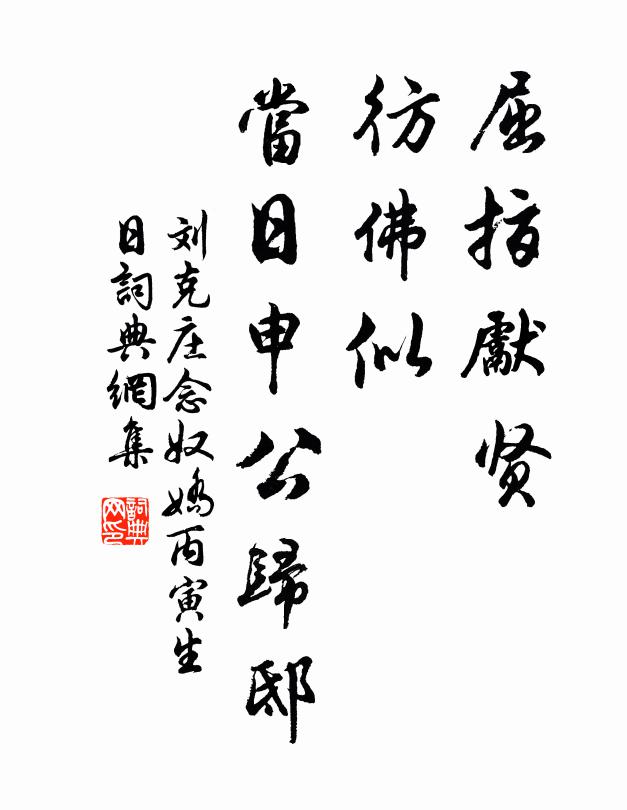 屈指獻贤
彷佛似
當日申公歸邸
刘克庄念奴嬌丙寅生
日詞典網集
詞典网印